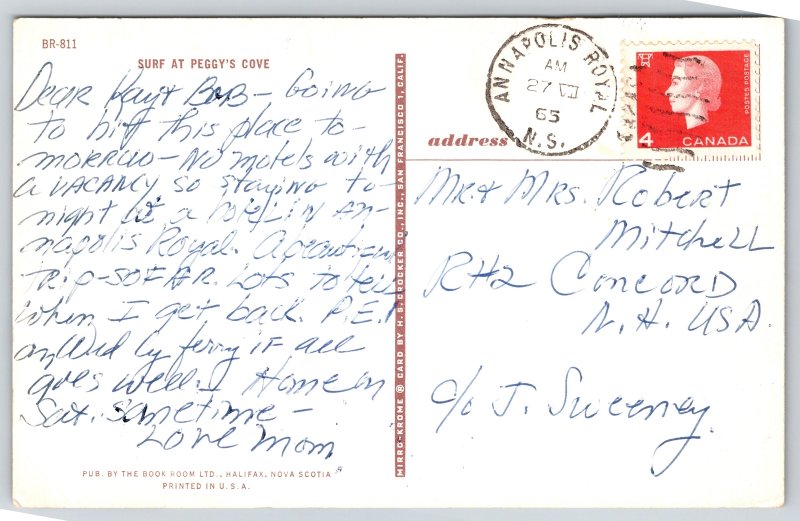 BR-811
SURF AT PEGGY'S COVE
Dear Kay & Bob - Going
to hit this place to-
morrow - No motels with
a VACANCY so staying to-
night at a hotel in An-
napolis Royal. A beautiful
Trip - SO FAR. Lots to tell
when I get back. P.E.I
on Wed by ferry if all
goes well. Home on
Sat. sometime -
Love Mom
PUB. BY THE BOOK ROOM LTD., HALIFAX, NOVA SCOTIA
PRINTED IN U.S.A.
MIRRO-KROME ® CARD BY H. S. CROCKER CO., INC., SAN FRANCISCO 1, CALIF.
ANNAPOLIS ROYAL
AM
27 VII
65
N.S.
POSTES POSTAGE
4 CANADA
address
Mr. & Mrs. Robert
Mitchell
R#2 Concord
N.H. USA.
c/o J. Sweeney